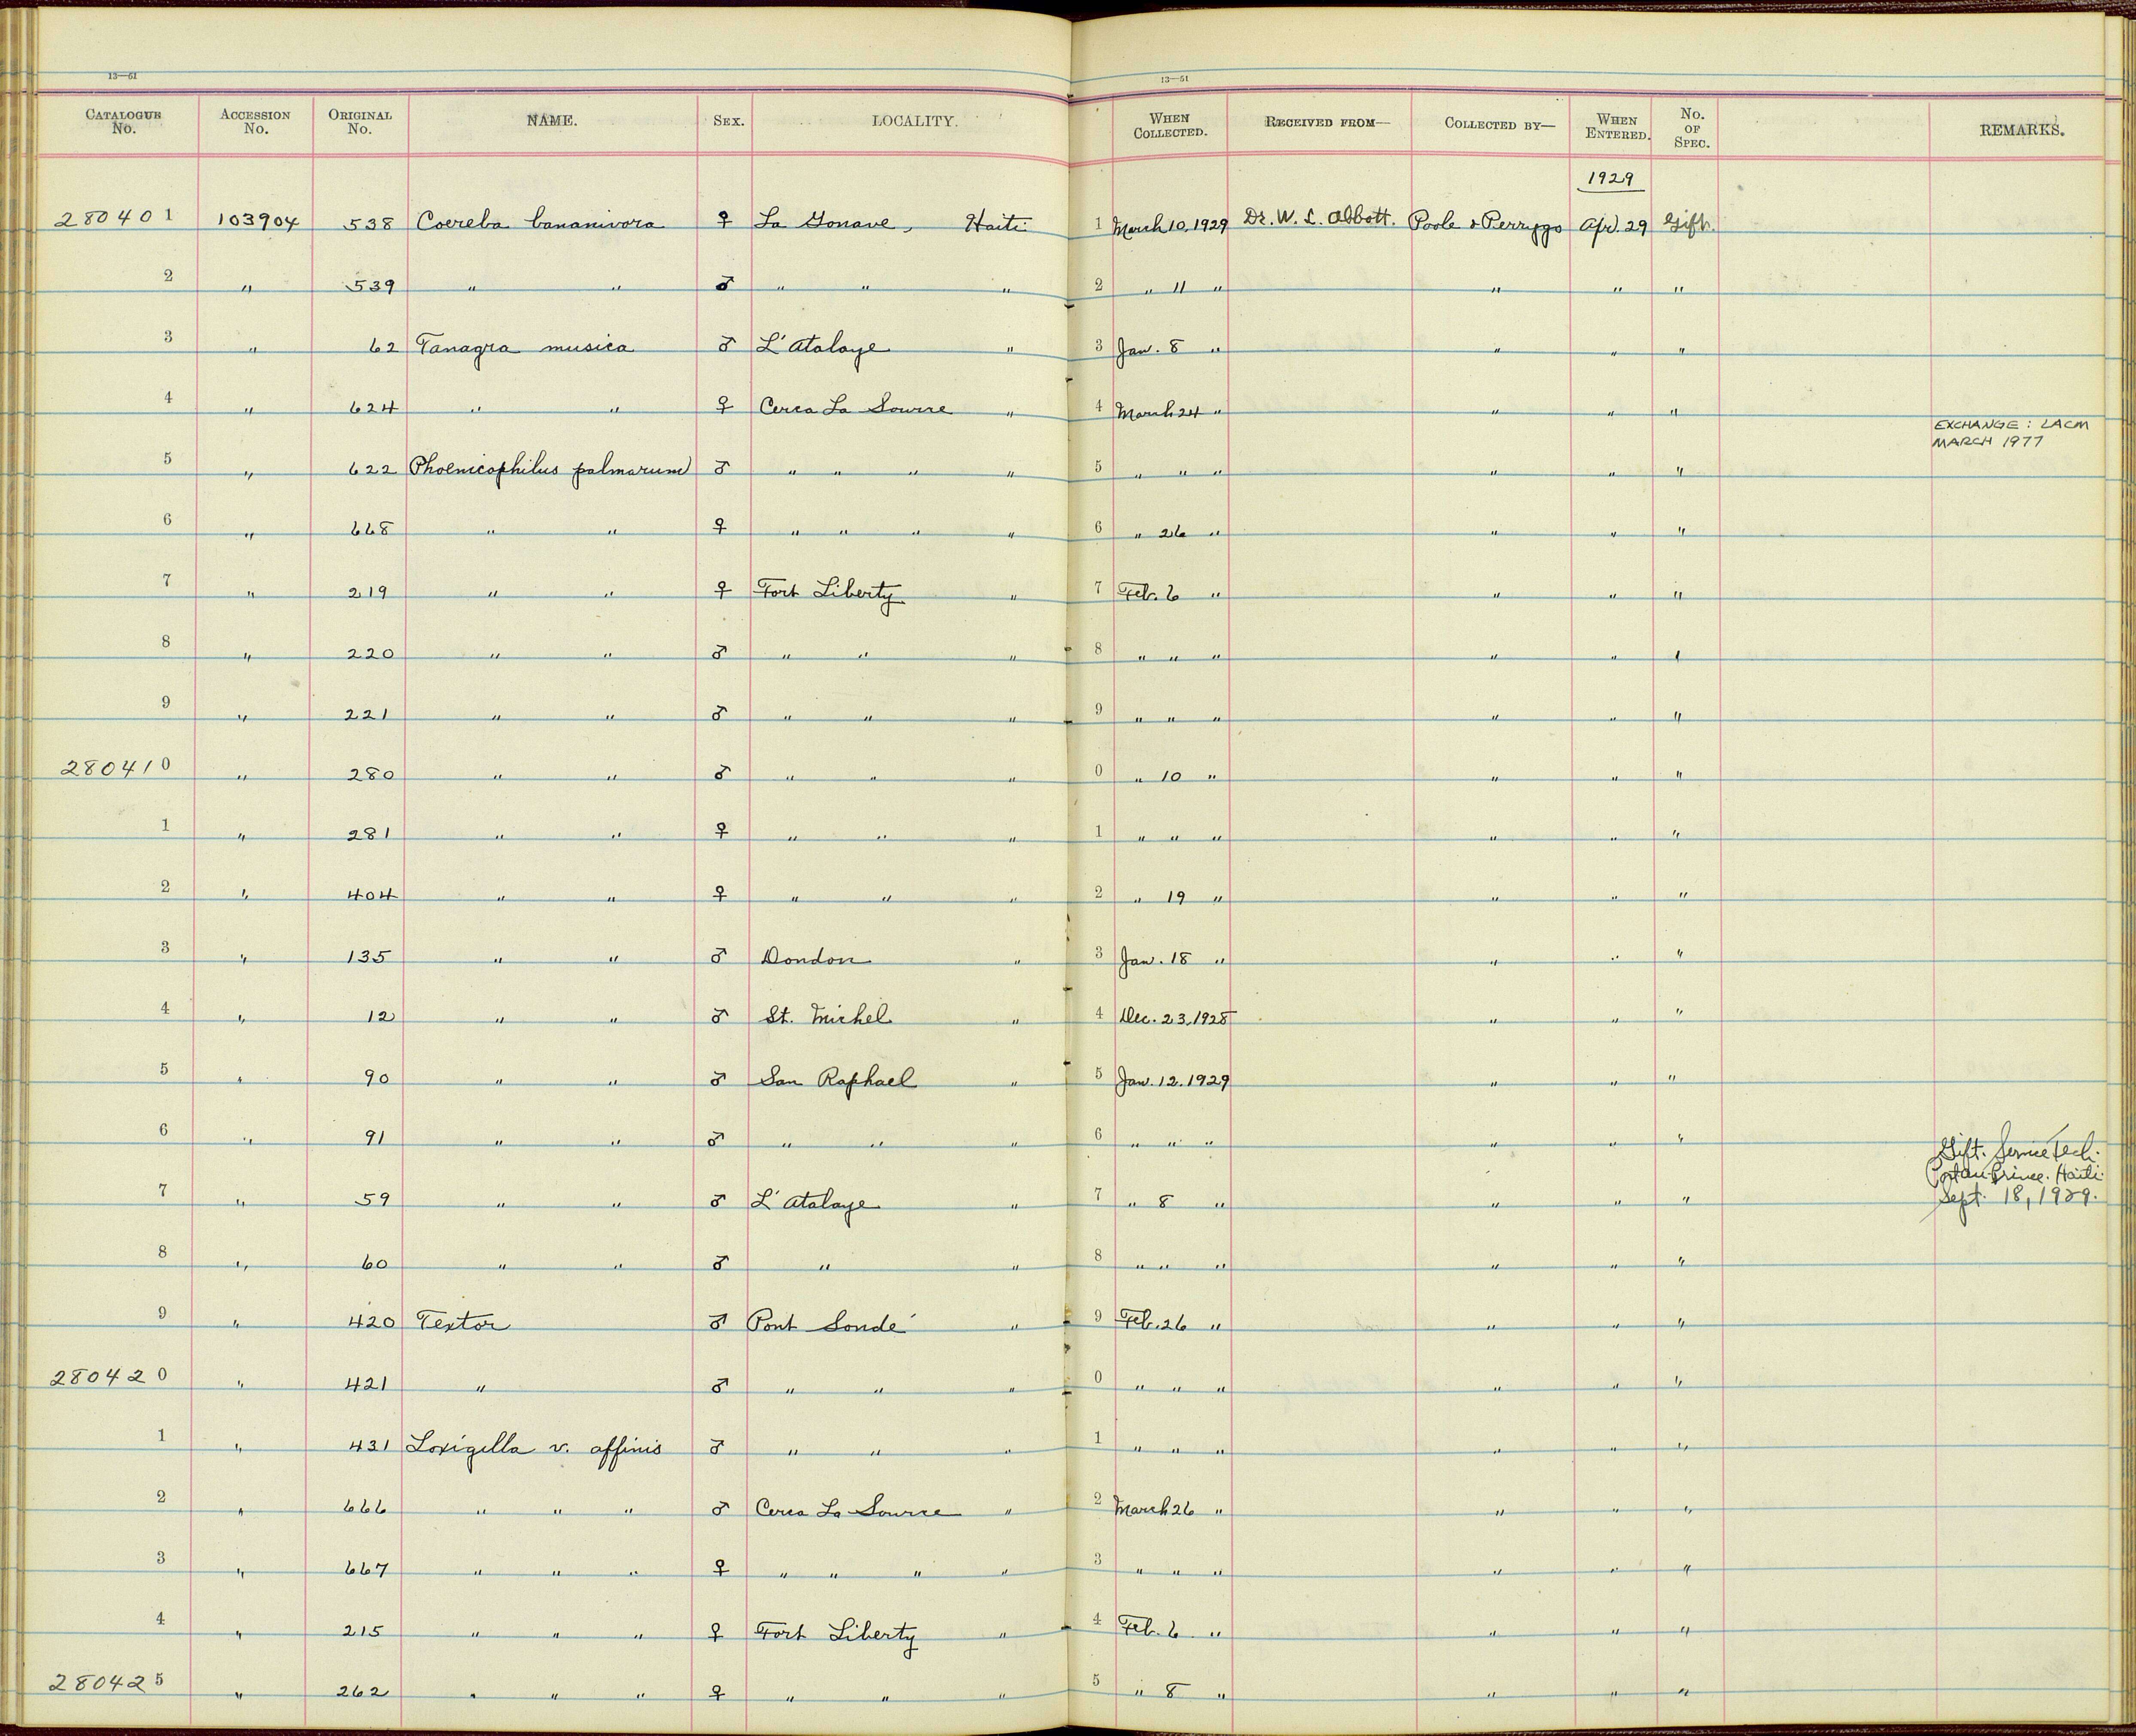 13—51 13—51
CATALOGUE No. ACCESSION No. ORIGINAL No. NAME. SEX. LOCALITY. WHEN COLLECTED. RECEIVED FROM— COLLECTED BY— WHEN ENTERED. No. OF SPEC. REMARKS.
1929
280401 103904 538 Coereba bananivora ♀ La Gonave, Haiti 1 March 10, 1929 Dr. W. L. Abbott. Poole & Perrygo Apr. 29 Gift.
2 " 539 " " ♂ " " " 2 " 11 " " " "
3 " 62 Tanagra musica ♂ L'Atalaye " 3 Jan. 8 " " " "
4 " 624 " " ♀ Cerca La Source " 4 March 24 " " " "
EXCHANGE: LACM
MARCH 1977
5 " 622 Phoenicophilus palmarum ♂ " " " " 5 " " " " " "
6 " 668 " " ♀ " " " " 6 " 26 " " " "
7 " 219 " " ♀ Fort Liberty " 7 Feb. 6 " " " "
8 " 220 " " ♂ " " " 8 " " " " " "
9 " 221 " " ♂ " " " 9 " " " " " "
280410 " 280 " " ♂ " " " 0 " 10 " " " "
1 " 281 " " ♀ " " " 1 " " " " " "
2 " 404 " " ♀ " " " 2 " 19 " " " "
3 " 135 " " ♂ Dondon " 3 Jan. 18 " " " "
4 " 12 " " ♂ St. Michel " 4 Dec. 23, 1928 " " "
5 " 90 " " ♂ San Raphael " 5 Jan. 12. 1929 " " "
6 " 91 " " ♂ " " " 6 " " " " " "
Gift. Service Tech.
Port au Prince. Haiti
Sept. 18, 1929.
7 " 59 " " ♂ L'Atalaye " 7 " 8 " " " "
8 " 60 " " ♂ " " 8 " " " " " "
9 " 420 Textor ♂ Pont Sondé " 9 Feb. 26 " " " "
280420 " 421 " ♂ " " " 0 " " " " " "
1 " 431 Loxigilla v. affinis ♂ " " " 1 " " " " " "
2 " 666 " " " ♂ Cerca La Source " 2 March 26 " " " "
3 " 667 " " " ♀ " " " " 3 " " " " " "
4 " 215 " " " ♀ Fort Liberty " 4 Feb. 6 " " " "
280425 " 262 " " " ♀ " " " 5 " 8 " " " "